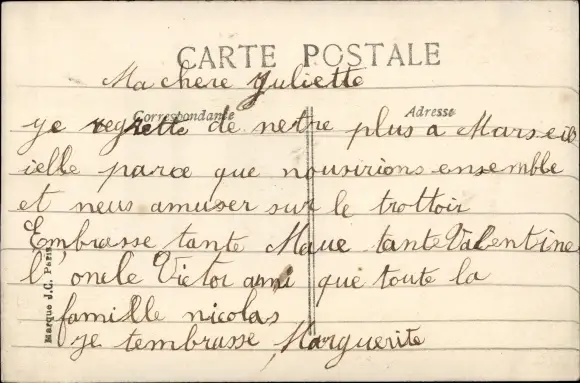 CARTE POSTALE
Ma chere Juliette
Correspondance Adresse
je regrette de netre plus a Marseil
ielle parce que nousirions ensemble
et nous amuser sur le trottoir
Embrasse tante Marie tante Valentine
l'oncle Victor ami que toute la
famille nicolas
je tembrasse Marguerite
Marque J.C. Paris